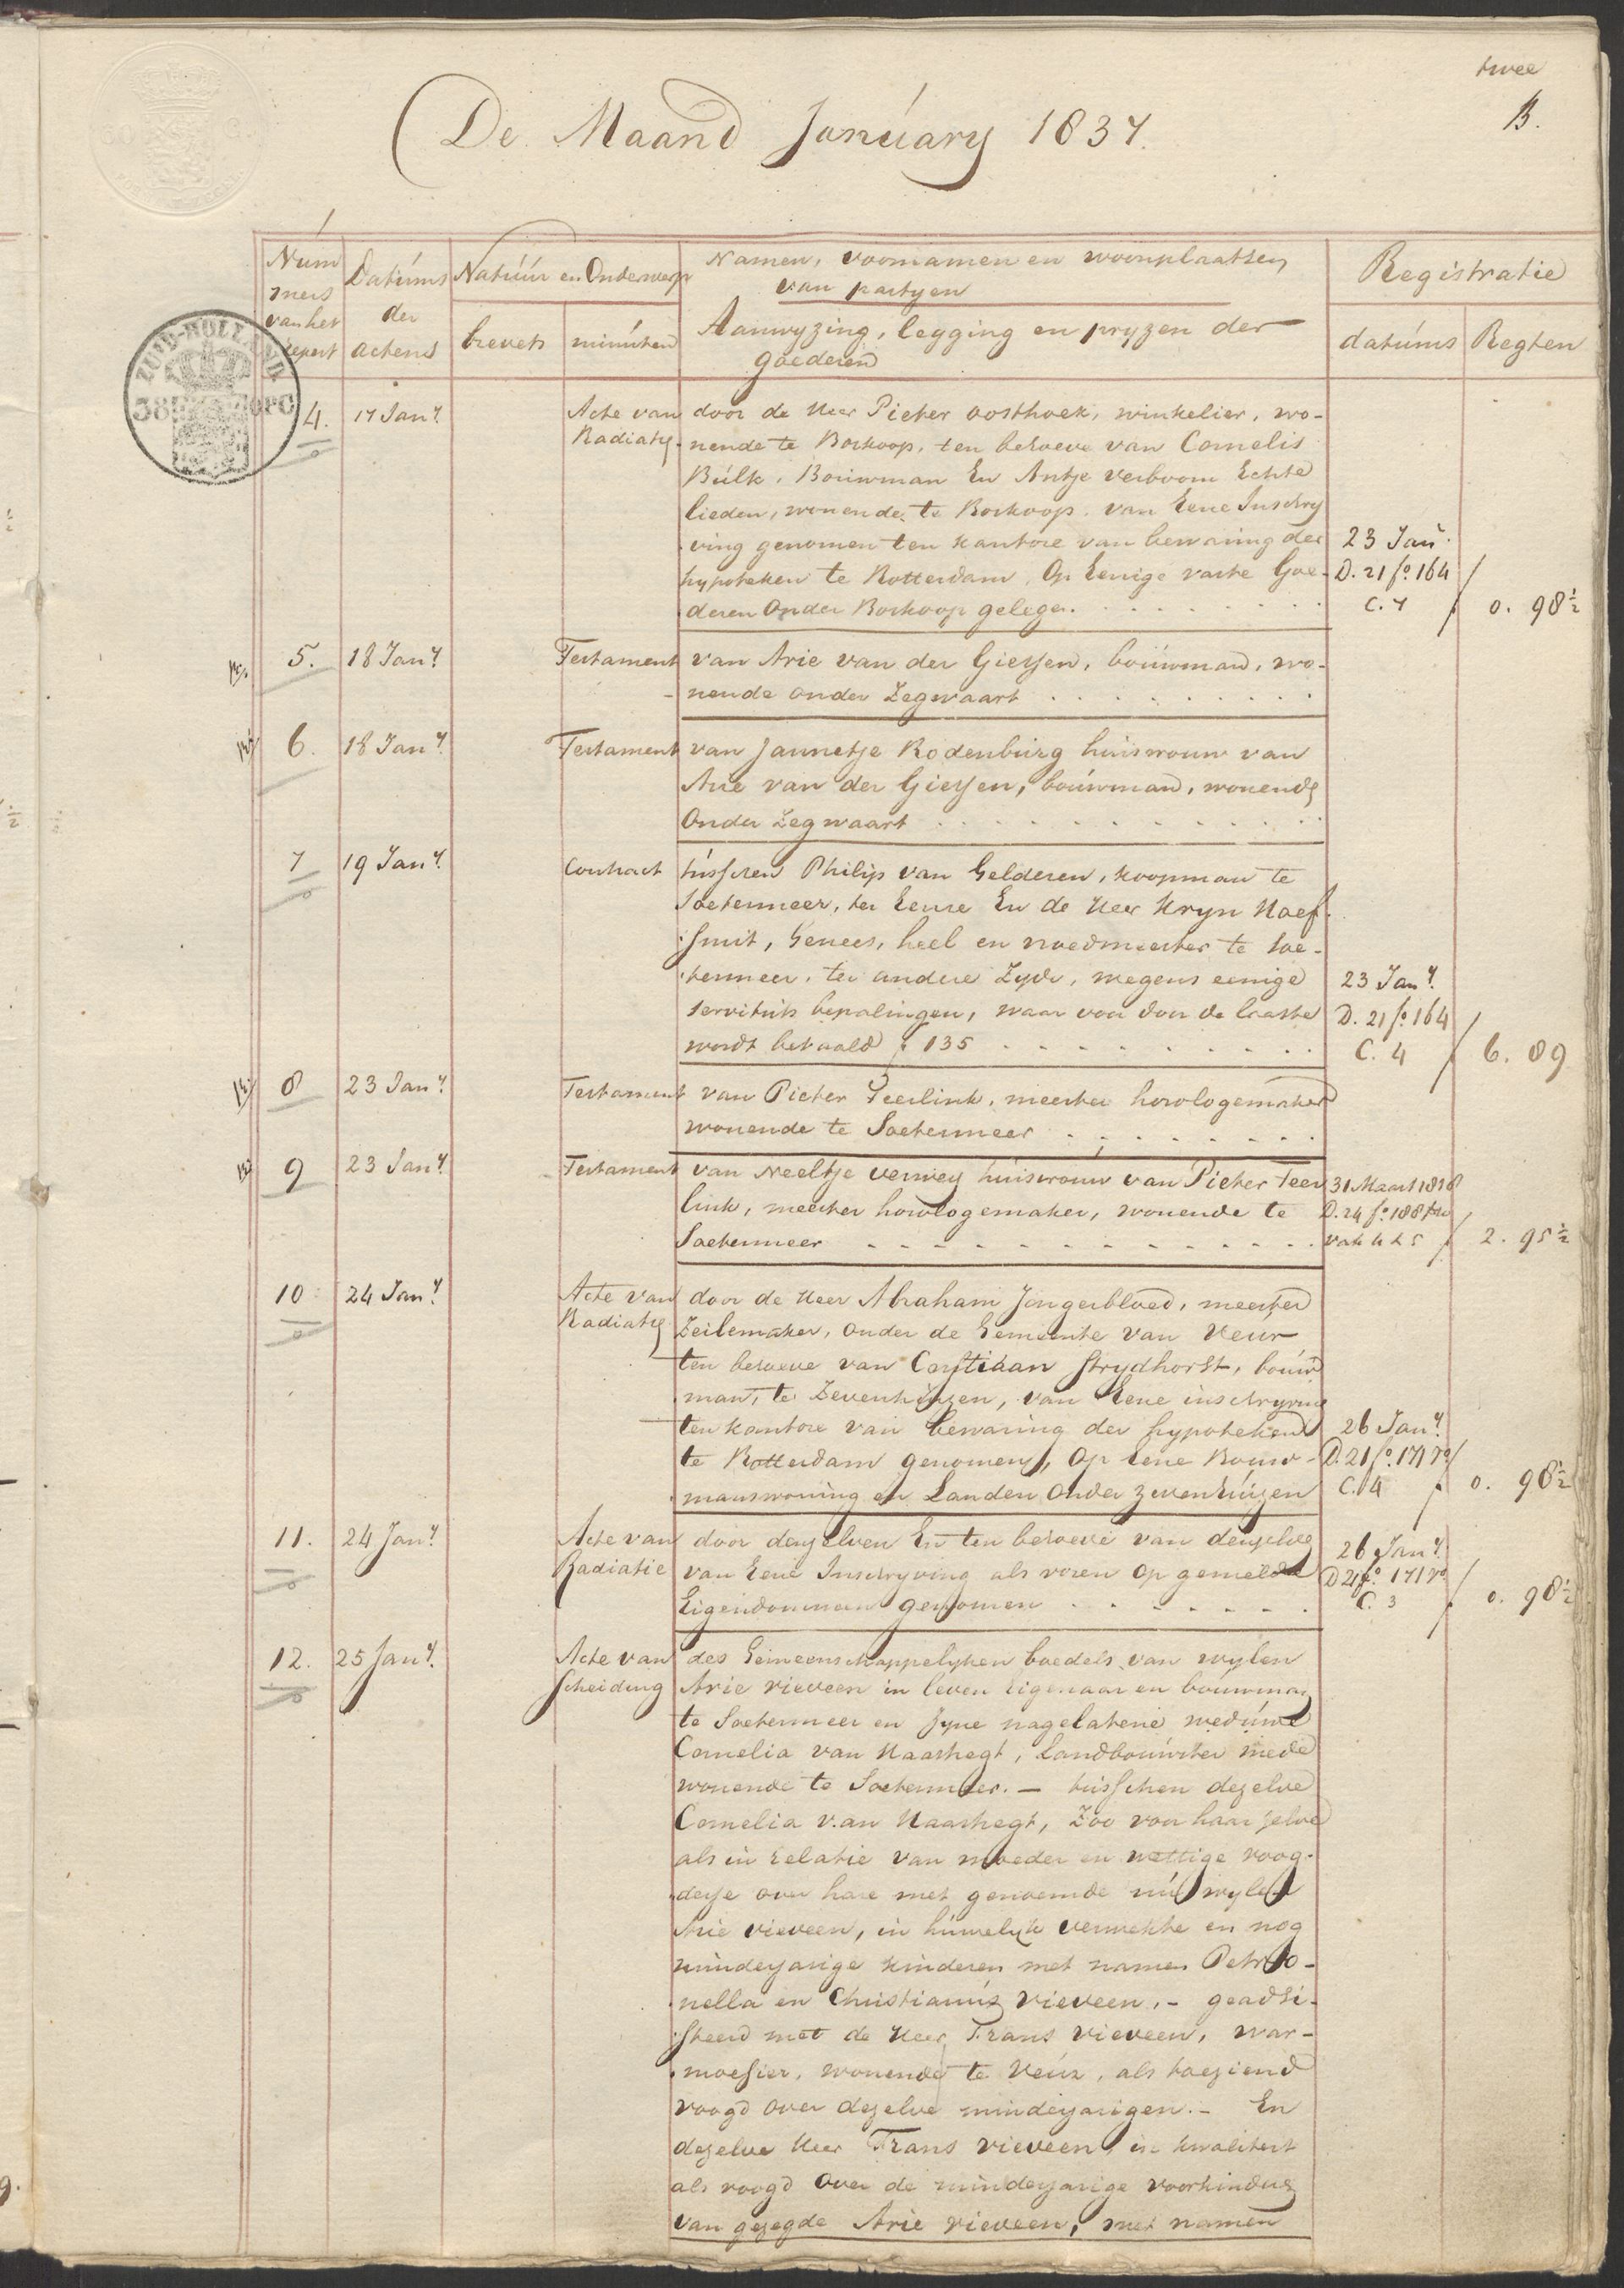 twee
B.
De Maand January 1837.
Num
mers
van het
repert
Datúms
der
actens
Natúúr en Onderwerp
brevets
minúten
Namen, voornamen en woonplaatsen
van partyen
Aanwyzing, legging en pryzen der
goederen
Registratie
datúms
Regten
ZUID-HOLLAND
4.
17 Jany.
Acte van
Radiatie
door de Heer Pieter Oosthoek, winkelier, wo-
nende te Boskoop, ten behoeve van Cornelis
Búlk, Bouwman En Antje Verboom Echte
lieden, wonende te Boskoop. van Eene Inschry
ving genomen ten kantore van bewaring der
hypoteken te Rotterdam, Op Eenige vaste Goe-
deren Onder Boskoop gelegen.
23 Jany.
D. 21 fo. 164
C. 7
0. 98½
5.
18 Jany.
Testament
van Arie van der Giessen, boúwman, wo-
nende onder Zegwaart
6.
18 Jany.
Testament
van Jannetje Rodenbúrg húisvrouw van
Arie van der Giessen, boúwman, wonende
Onder Zegwaart
7
19 Jany.
Contract
tússchen Philip van Gelderen, koopman te
Soetermeer, ter Eenre En de Heer Kryn Hoef
smit, Genees, heel en vroedmeester te Soe-
termeer, ter andere Zyde, wegens eenige
servituts bepalingen, waar voor door de laaste
wordt betaald ƒ 135
23 Jany.
D. 21 fo. 164
C. 4
6. 89
8
23 Jany.
Testament
van Pieter Teerlink, meester horologemaker
wonende te Soetermeer
9
23 Jany.
Testament
van Neeltje Verwey húisvrouw van Pieter Teer
link, meester horologemaker, wonende te
Soetermeer
31 Maart 1838
D. 24 fo. 188
vak 4 & 5
2. 95½
10
24 Jany.
Acte van
Radiatie
door de Heer Abraham Jongerbloed, meester
Zeilemaker, Onder de Gemeente van Veur
ten behoeve van Corstiaan Strydhorst, boúw
man, te Zevenhúizen, van Eene inschryving
ten kantore van bewaring der hypoteken
te Rotterdam genomen, Op Eene Bouw-
manswoning en Landen Onder Zevenhúizen
26 Jany.
D. 21 fo. 171 vo
C. 4
0. 98½
11.
24 Jany.
Acte van
Radiatie
door denzelven En ten behoeve van denzelve
van Eene Inschryving als voren Op gemelde
Eigendommen genomen
26 Jany.
D 21 fo. 171 vo
C. 3
0. 98½
12.
25 Jany.
Acte van
Scheiding
des Gemeenschappelyken boedels van wylen
Arie Vieveen in leven Eigenaar en bouwman
te Soetermeer en Zyne nagelatene wedúwe
Cornelia van Haashegt, Landboúwster mede
wonende te Soetermeer. — tússchen dezelve
Cornelia van Haashegt, Zoo voor haar zelve
als in Relatie van moeder en wettige voog-
desse over hare met genoemde nú wylen
Arie Vieveen, in húwelyk verwekte en nog
minderjarige kinderen met namen Petro-
nella en Christianús Vieveen. - geadsi-
steerd met de Heer Frans Vieveen, War-
moesier, wonende te Veúr, als toeziend
voogd over dezelve minderjarigen. — En
dezelve Heer Frans Vieveen, in kwaliteit
als voogd over de minderjarige voorkinders
van gezegde Arie Vieveen, met namen